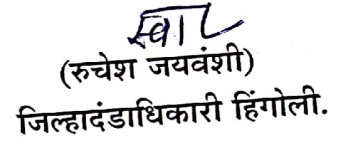 स्वा/
(रुचेश जयवंशी)
जिल्हादंडाधिकारी हिंगोली.